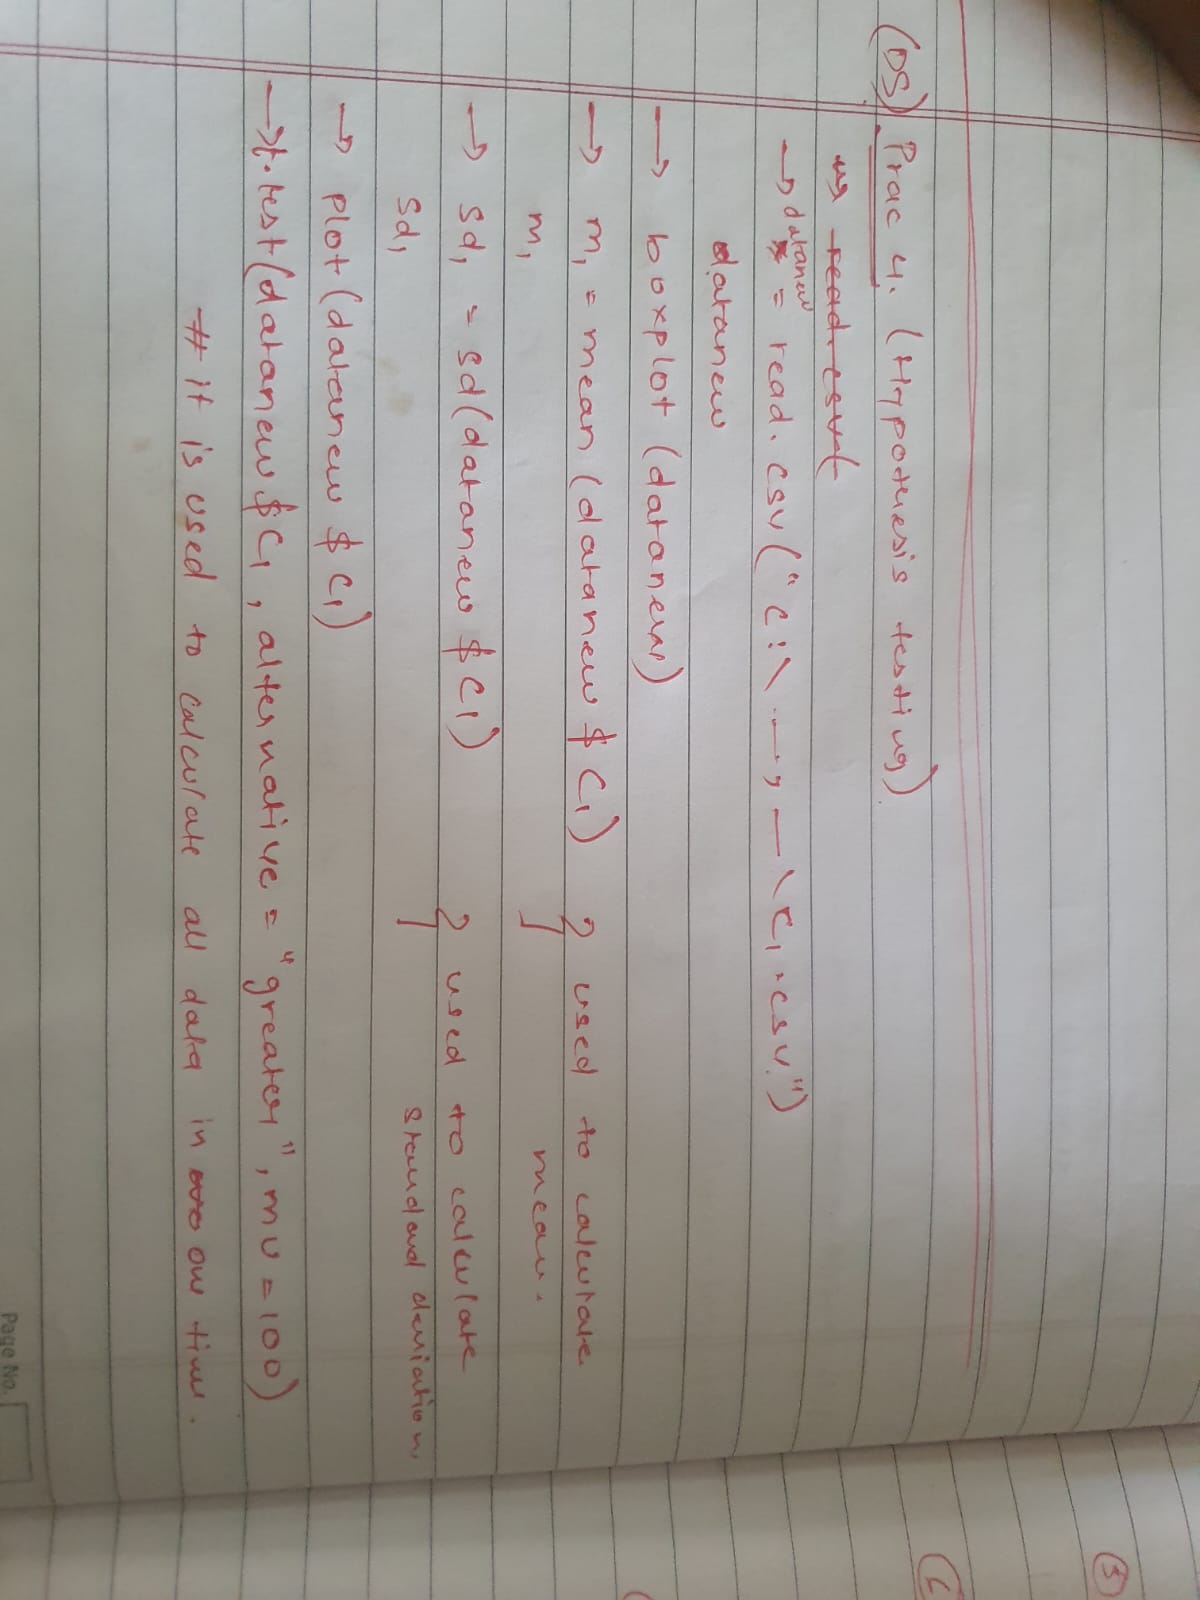 (DS) Prac 4. (Hypothesis testing)
→ datanew = read.csv("C:\ —, — \C1.csv")
datanew
→ boxplot (datanew)
→ m1 = mean (datanew $ C1) } used to calculate
m1 mean.
→ sd1 = sd(datanew $ C1) } used to calculate
sd1 standard deviation.
→ plot (datanew $ C1)
→ t.test(datanew $ C1, alternative = "greater", mu = 100)
# it is used to calculate all data in one time.
Page No.
3